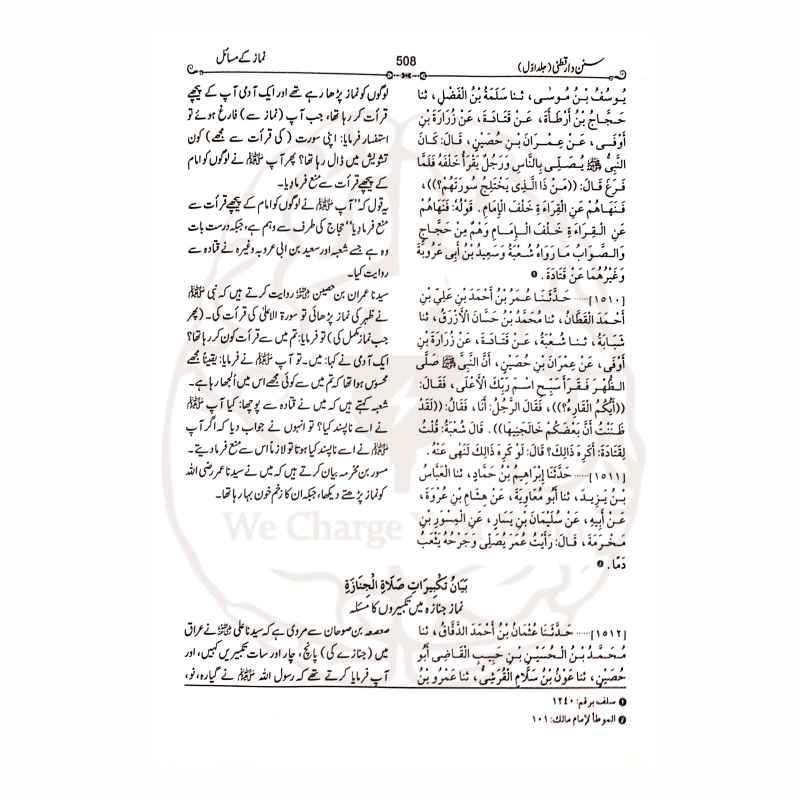 سنن دارقطنی (جلد اول)
508
نماز کے مسائل
يُوسُفُ بْنُ مُوسٰى ، ثنا سَلَمَةُ بْنُ الْفَضْلِ ، ثنا
حَجَّاجُ بْنُ أَرْطَأَةَ ، عَنْ قَتَادَةَ ، عَنْ زُرَارَةَ بْنِ
أَوْفٰى ، عَنْ عِمْرَانَ بْنِ حُصَيْنٍ ، قَالَ: كَانَ
النَّبِيُّ ﷺ يُصَلِّي بِالنَّاسِ وَرَجُلٌ يَقْرَأُ خَلْفَهُ فَلَمَّا
فَرَغَ قَالَ: ((مَنْ ذَا الَّذِي يَخْتَلِجُ سُورَتَهُمْ؟)) ،
فَنَهَاهُمْ عَنِ الْقِرَاءَةِ خَلْفَ الْإِمَامِ . قَوْلُهُ: فَنَهَاهُمْ
عَنِ الْقِرَاءَةِ خَلْفَ الْإِمَامِ وَهْمٌ مِنْ حَجَّاجٍ
وَالصَّوَابُ مَا رَوَاهُ شُعْبَةُ وَسَعِيدُ بْنُ أَبِي عَرُوبَةَ
وَغَيْرُهُمَا عَنْ قَتَادَةَ . ❶
[١٥١٠] ..... حَدَّثَنَا عُمَرُ بْنُ أَحْمَدَ بْنِ عَلِيِّ بْنِ
أَحْمَدَ الْقَطَّانُ ، ثنا مُحَمَّدُ بْنُ حَسَّانَ الْأَزْرَقُ ، ثنا
شَبَابَةُ ، ثنا شُعْبَةُ ، عَنْ قَتَادَةَ ، عَنْ زُرَارَةَ بْنِ
أَوْفٰى ، عَنْ عِمْرَانَ بْنِ حُصَيْنٍ ، أَنَّ النَّبِيَّ ﷺ صَلَّى
الظُّهْرَ فَقَرَأَ سَبِّحِ اسْمَ رَبِّكَ الْأَعْلٰى ، فَقَالَ:
((أَيُّكُمُ الْقَارِءُ؟)) ، فَقَالَ الرَّجُلُ: أَنَا ، فَقَالَ: ((لَقَدْ
ظَنَنْتُ أَنَّ بَعْضَكُمْ خَالَجَنِيهَا)) . قَالَ شُعْبَةُ: قُلْتُ
لِقَتَادَةَ: أَكَرِهَ ذَالِكَ؟ قَالَ: لَوْ كَرِهَ ذَالِكَ لَنَهٰى عَنْهُ .
[١٥١١] ..... حَدَّثَنَا إِبْرَاهِيمُ بْنُ حَمَّادٍ ، ثنا الْعَبَّاسُ
بْنُ يَزِيدَ ، ثنا أَبُو مُعَاوِيَةَ ، عَنْ هِشَامِ بْنِ عُرْوَةَ ،
عَنْ أَبِيهِ ، عَنْ سُلَيْمَانَ بْنِ يَسَارٍ ، عَنِ الْمِسْوَرِ بْنِ
مَخْرَمَةَ ، قَالَ: رَأَيْتُ عُمَرَ يُصَلِّي وَجَرْحُهُ يَثْعَبُ
دَمًا . ❷
لوگوں کو نماز پڑھا رہے تھے اور ایک آدمی آپ کے پیچھے
قرأت کر رہا تھا، جب آپ (نماز سے) فارغ ہوئے تو
استفسار فرمایا: اپنی سورت (کی قرأت سے مجھے) کون
تشویش میں ڈال رہا تھا؟ پھر آپ ﷺ نے لوگوں کو امام
کے پیچھے قرأت سے منع فرما دیا۔
یہ قول کہ "آپ ﷺ نے لوگوں کو امام کے پیچھے قرأت سے
منع فرما دیا" حجاج کی طرف سے وہم ہے، جبکہ درست بات
وہ ہے جسے شعبہ اور سعید بن ابی عروبہ وغیرہ نے قتادہ سے
روایت کیا۔
سیدنا عمران بن حصین ؓ روایت کرتے ہیں کہ نبی ﷺ
نے ظہر کی نماز پڑھائی تو سورۃ الاعلیٰ کی قرأت کی۔ (پھر
جب نماز مکمل کی) تو فرمایا: تم میں سے قرأت کون کر رہا تھا؟
ایک آدمی نے کہا: میں۔ تو آپ ﷺ نے فرمایا: یقیناً مجھے
محسوس ہوا تھا کہ تم میں سے کوئی مجھے اس میں اُلجھا رہا ہے۔
شعبہ کہتے ہیں کہ میں نے قتادہ سے پوچھا: کیا آپ ﷺ
نے اسے ناپسند کیا؟ تو انہوں نے جواب دیا کہ اگر آپ
ﷺ نے اسے ناپسند کیا ہوتا تو لازماً اس سے منع فرما دیتے۔
مسور بن مخرمہ بیان کرتے ہیں کہ میں نے سیدنا عمر رضی اللہ
کو نماز پڑھتے دیکھا، جبکہ ان کا زخم خون بہا رہا تھا۔
We Charge
بَيَانُ تَكْبِيرَاتِ صَلَاةِ الْجِنَازَةِ
نماز جنازہ میں تکبیروں کا مسئلہ
[١٥١٢] ..... حَدَّثَنَا عُثْمَانُ بْنُ أَحْمَدَ الدَّقَّاقُ ، ثنا
مُحَمَّدُ بْنُ الْحُسَيْنِ بْنِ حَبِيبٍ الْقَاضِي أَبُو
حُصَيْنٍ ، ثنا عَوْنُ بْنُ سَلَّامٍ الْقُرَشِيُّ ، ثنا عَمْرُو بْنُ
صعصعہ بن صوحان سے مروی ہے کہ سیدنا علی ؓ نے عراق
میں (جنازے کی) پانچ، چار اور سات تکبیریں کہیں، اور
آپ فرمایا کرتے تھے کہ رسول اللہ ﷺ نے گیارہ، نو،
❶ سلف برقم: ١٢٤٠
❷ الموطأ لإمام مالك: ١٠١